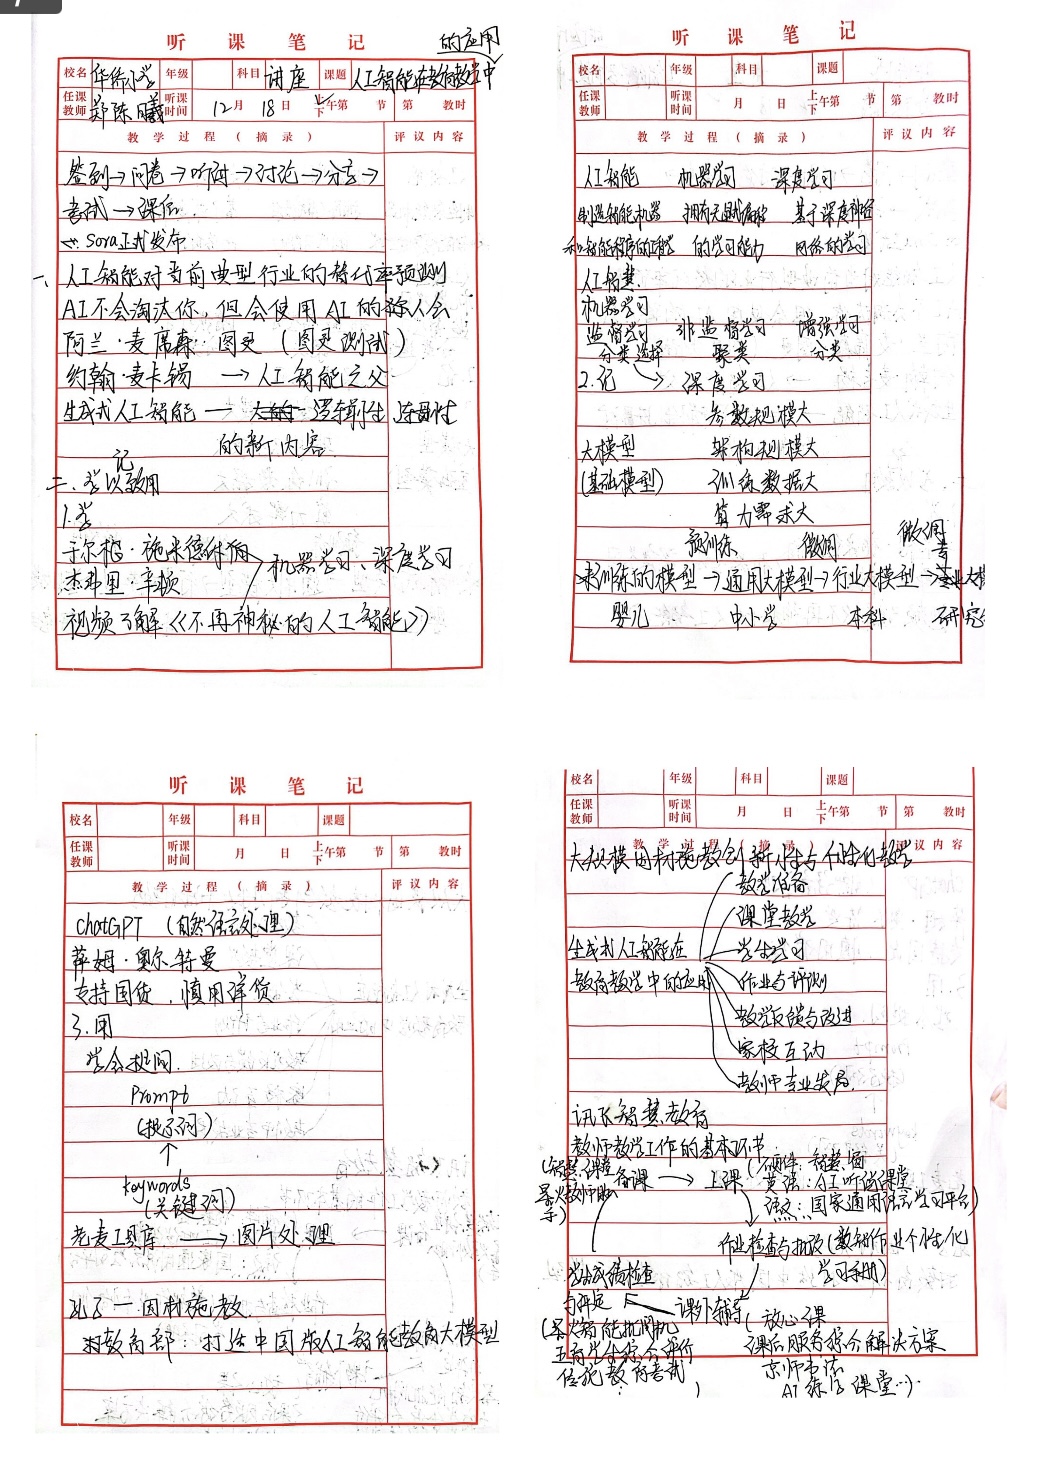 听 课 笔 记
的应用
校名 华侨小学 年级 科目 讲座 课题 人工智能在教育教学中
任课教师 郑陈曦 听课时间 12月 18日 上下午第 节 第 教时
教 学 过 程 ( 摘 录 ) 评 议 内 容
签到→问卷→听讲→讨论→分享→
考试→课后
Sora正式发布
一、人工智能对当前典型行业的替代率预测
AI不会淘汰你,但会使用AI的人会
阿兰·麦席森·图灵(图灵测试)
约翰·麦卡锡 → 人工智能之父
生成式人工智能 — 逻辑性 连贯性
的新内容
记
二、学以致用
1.学
于尔根·施米德休伯
机器学习、深度学习
杰弗里·辛顿
视频了解《《不再神秘的人工智能》》
听 课 笔 记
校名 年级 科目 课题
任课教师 听课时间 月 日 上下午第 节 第 教时
教 学 过 程 ( 摘 录 ) 评 议 内 容
人工智能 机器学习 深度学习
制造智能机器 拥有无显式编程 基于深度神经
和智能程序的工程 的学习能力 网络的学习
人工智慧
机器学习
监督学习 非监督学习 增强学习
分类选择 聚类 分类
2.记 → 深度学习
参数规模大
大模型 架构规模大
(基础模型) 训练数据大
算力需求大
预训练 微调 微调
未训练的模型→通用大模型→行业大模型→专业大模
婴儿 中小学 本科 研究
听 课 笔 记
校名 年级 科目 课题
任课教师 听课时间 月 日 上下午第 节 第 教时
教 学 过 程 ( 摘 录 ) 评 议 内 容
chatGPT (自然语言处理)
萨姆·奥尔特曼
支持国货,慎用洋货
3.问
学会提问
Prompt
(提示词)
↑
keywords
(关键词)
老麦工具库 → 图片处理
孔子 — 因材施教
教育部:打造中国版人工智能教育大模型
校名 年级 科目 课题
任课教师 听课时间 月 日 上下午第 节 第 教时
教 学 过 程 ( 摘 录 ) 评 议 内 容
大规模因材施教 创新性与个性化教学
教学准备
课堂教学
生成式人工智能在 学生学习
教育教学中的应用 作业与评测
教学反馈与改进
家校互动
教师专业发展
讯飞智慧教育
教师教学工作的基本环节
备课 → 上课
英语:AI听说课堂
语文:国家通用语言学习平台)
作业检查与批改(数智作业个性化
学习手册)
学业成绩检查
与评定 课外辅导
(放心课
课后服务综合解决方案
五育学生综合评价
京师书法
AI 练字课堂…)